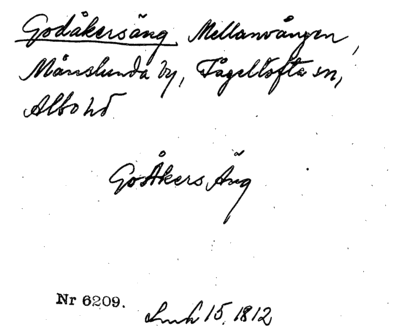 Godåkersäng Mellanvången,
Månslunda by, Fågeltofta sn,
Albo hd
GoÅkers Äng
Nr 6209.
Lmh 15. 1812